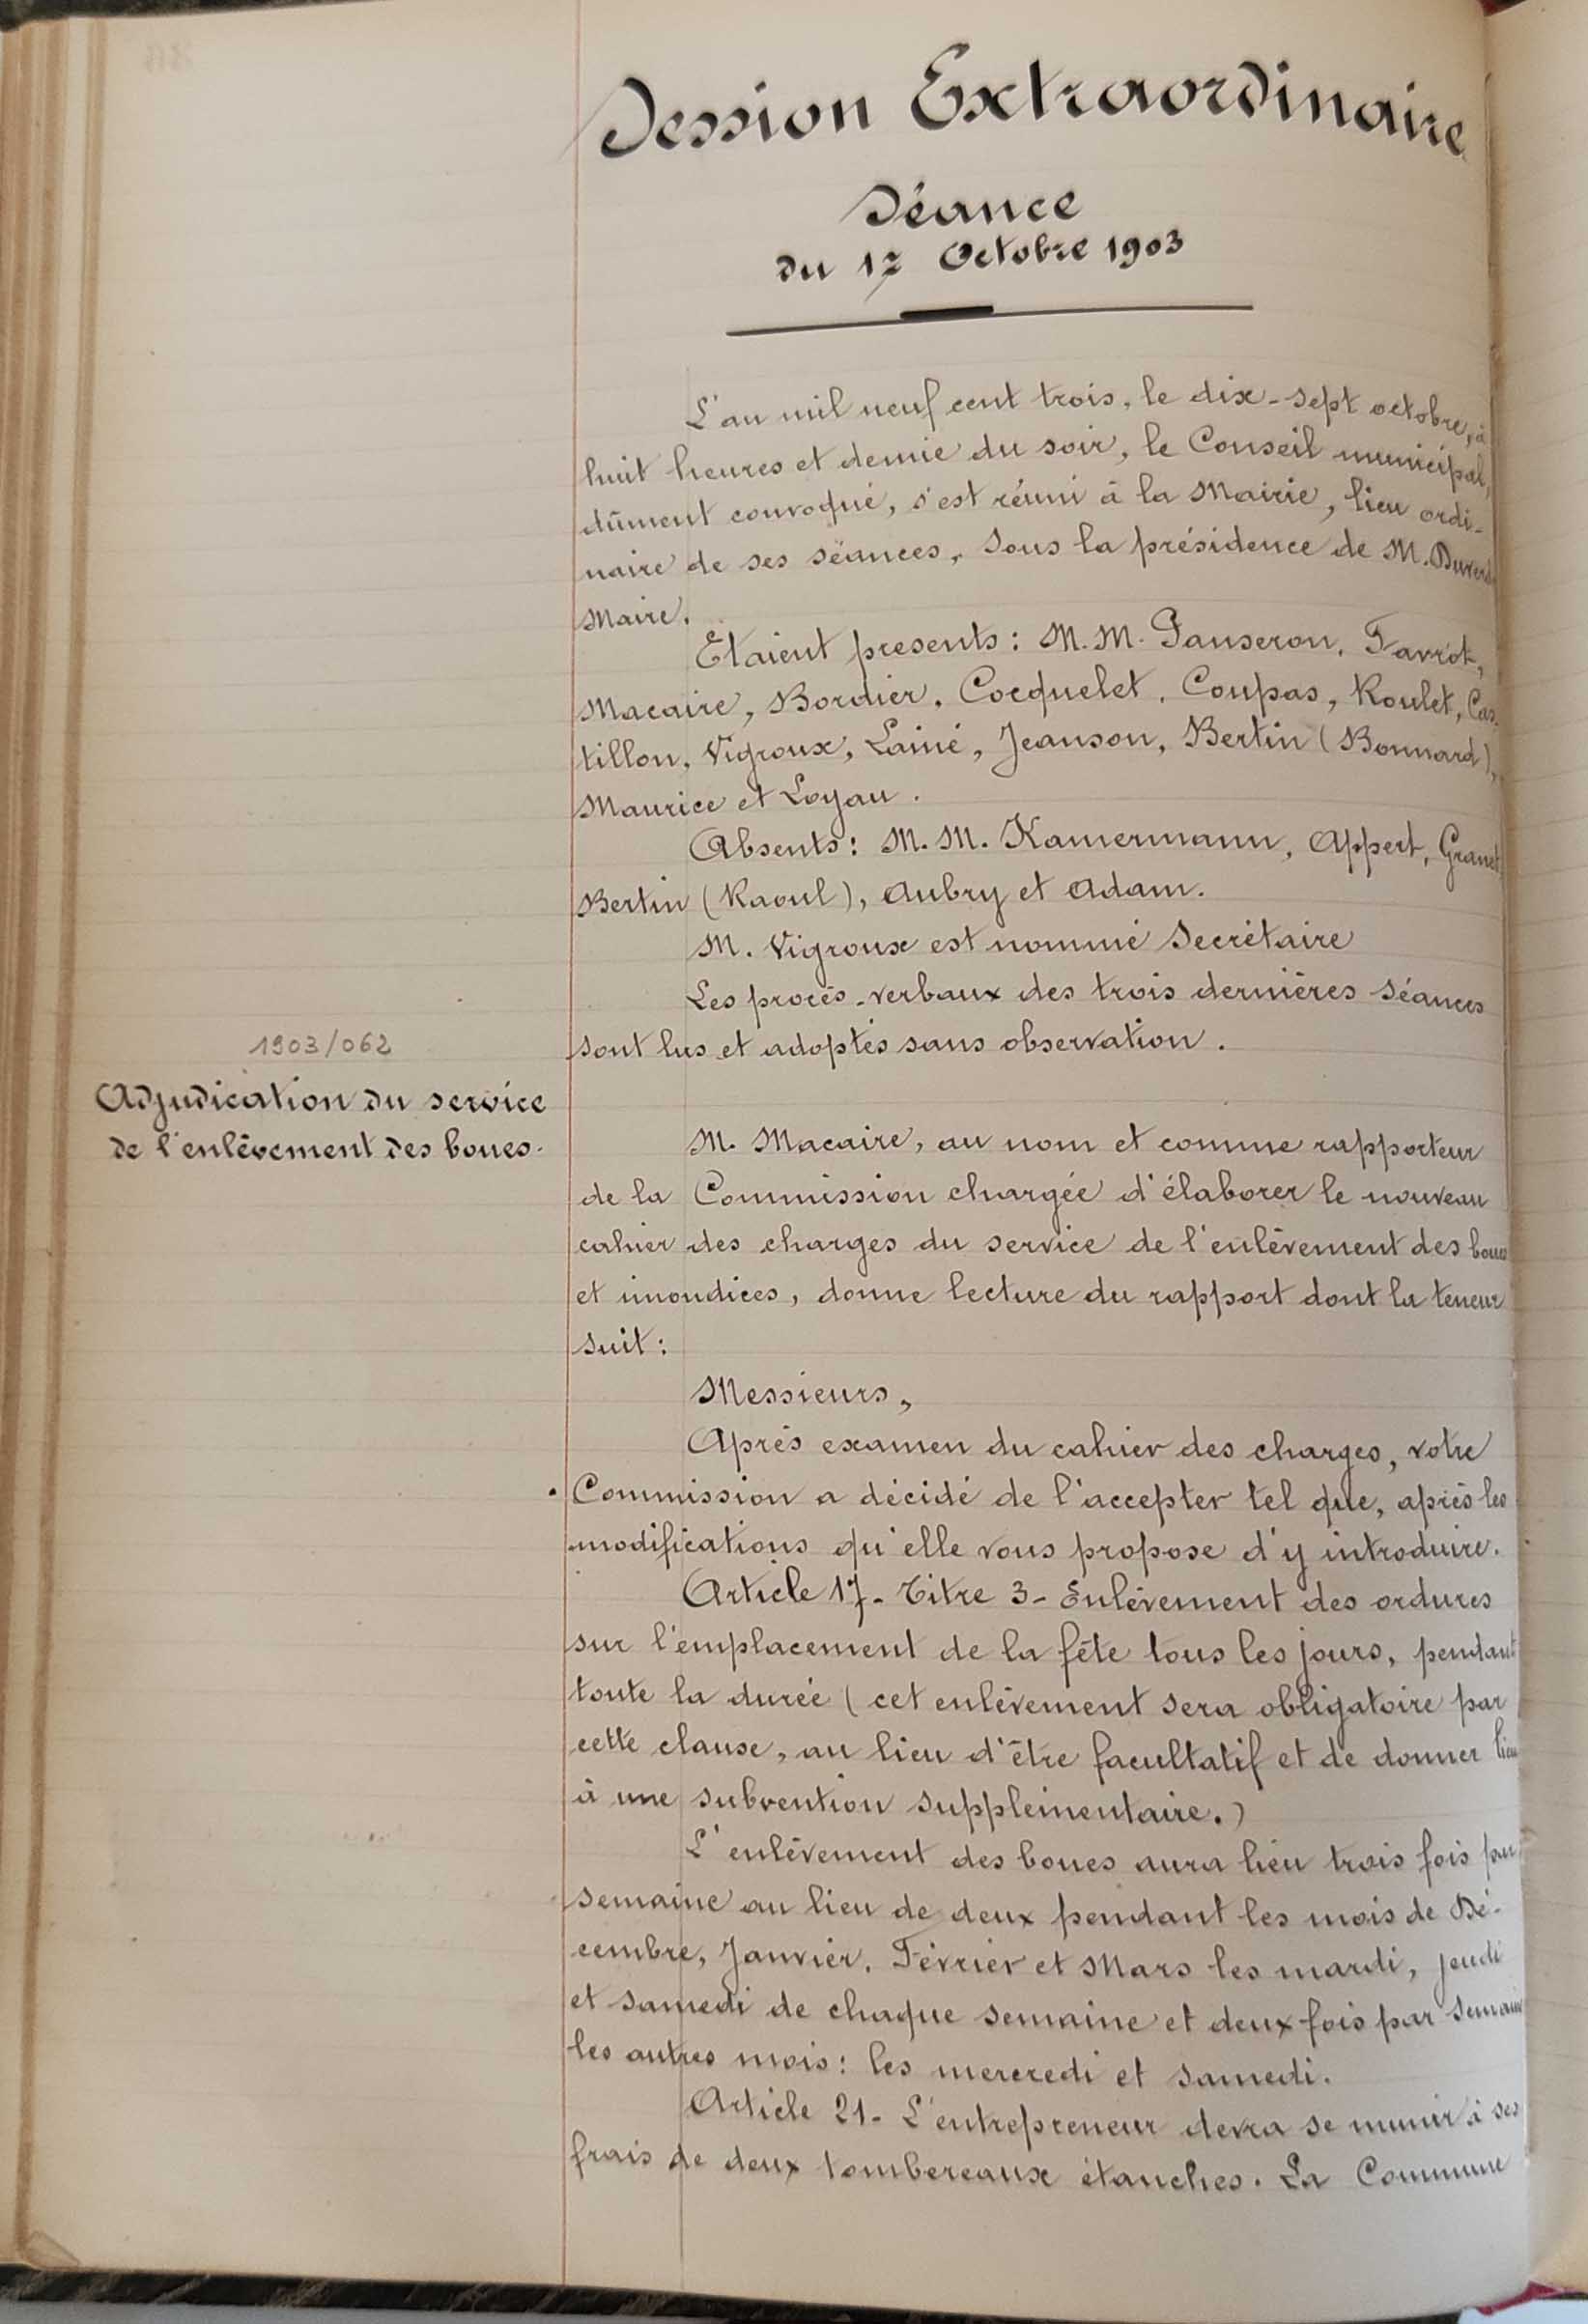 Session Extraordinaire
Séance
du 17 Octobre 1903
L'an mil neuf cent trois, le dix-sept octobre, à
huit heures et demie du soir, le Conseil municipal,
dûment convoqué, s'est réuni à la Mairie, lieu ordi-
naire de ses séances, sous la présidence de M.
Maire.
Etaient presents : M.M. Panseron, Favrot,
Macaire, Bordier, Cocquelet, Coupas, Roulet, Cas-
tillon, Vigroux, Lainé, Jeanson, Bertin (Bonnard),
Maurice et Loyau.
Absents : M.M. Kamermann, Appert, Granet,
Bertin (Raoul), Aubry et Adam.
M. Vigroux est nommé Secrétaire
Les procès-verbaux des trois dernières Séances
sont lus et adoptés sans observation.
1903/062
Adjudication du service
de l'enlèvement des boues.
M. Macaire, au nom et comme rapporteur
de la Commission chargée d'élaborer le nouveau
cahier des charges du service de l'enlèvement des boues
et imondices, donne lecture du rapport dont la teneur
suit :
Messieurs,
Après examen du cahier des charges, votre
Commission a décidé de l'accepter tel que, après les
modifications qu'elle vous propose d'y introduire.
Article 17 - Titre 3 - Enlèvement des ordures
sur l'emplacement de la fête tous les jours, pendant
toute la durée (cet enlèvement sera obligatoire par
cette clause, au lieu d'être facultatif et de donner lieu
à une subvention supplémentaire.)
L'enlèvement des boues aura lieu trois fois par
semaine au lieu de deux pendant les mois de Dé-
cembre, Janvier, Février et Mars les mardi, jeudi
et samedi de chaque semaine et deux fois par semaine
les autres mois : les mercredi et samedi.
Article 21 - L'entrepreneur devra se munir à ses
frais de deux tombereaux étanches. La Commune